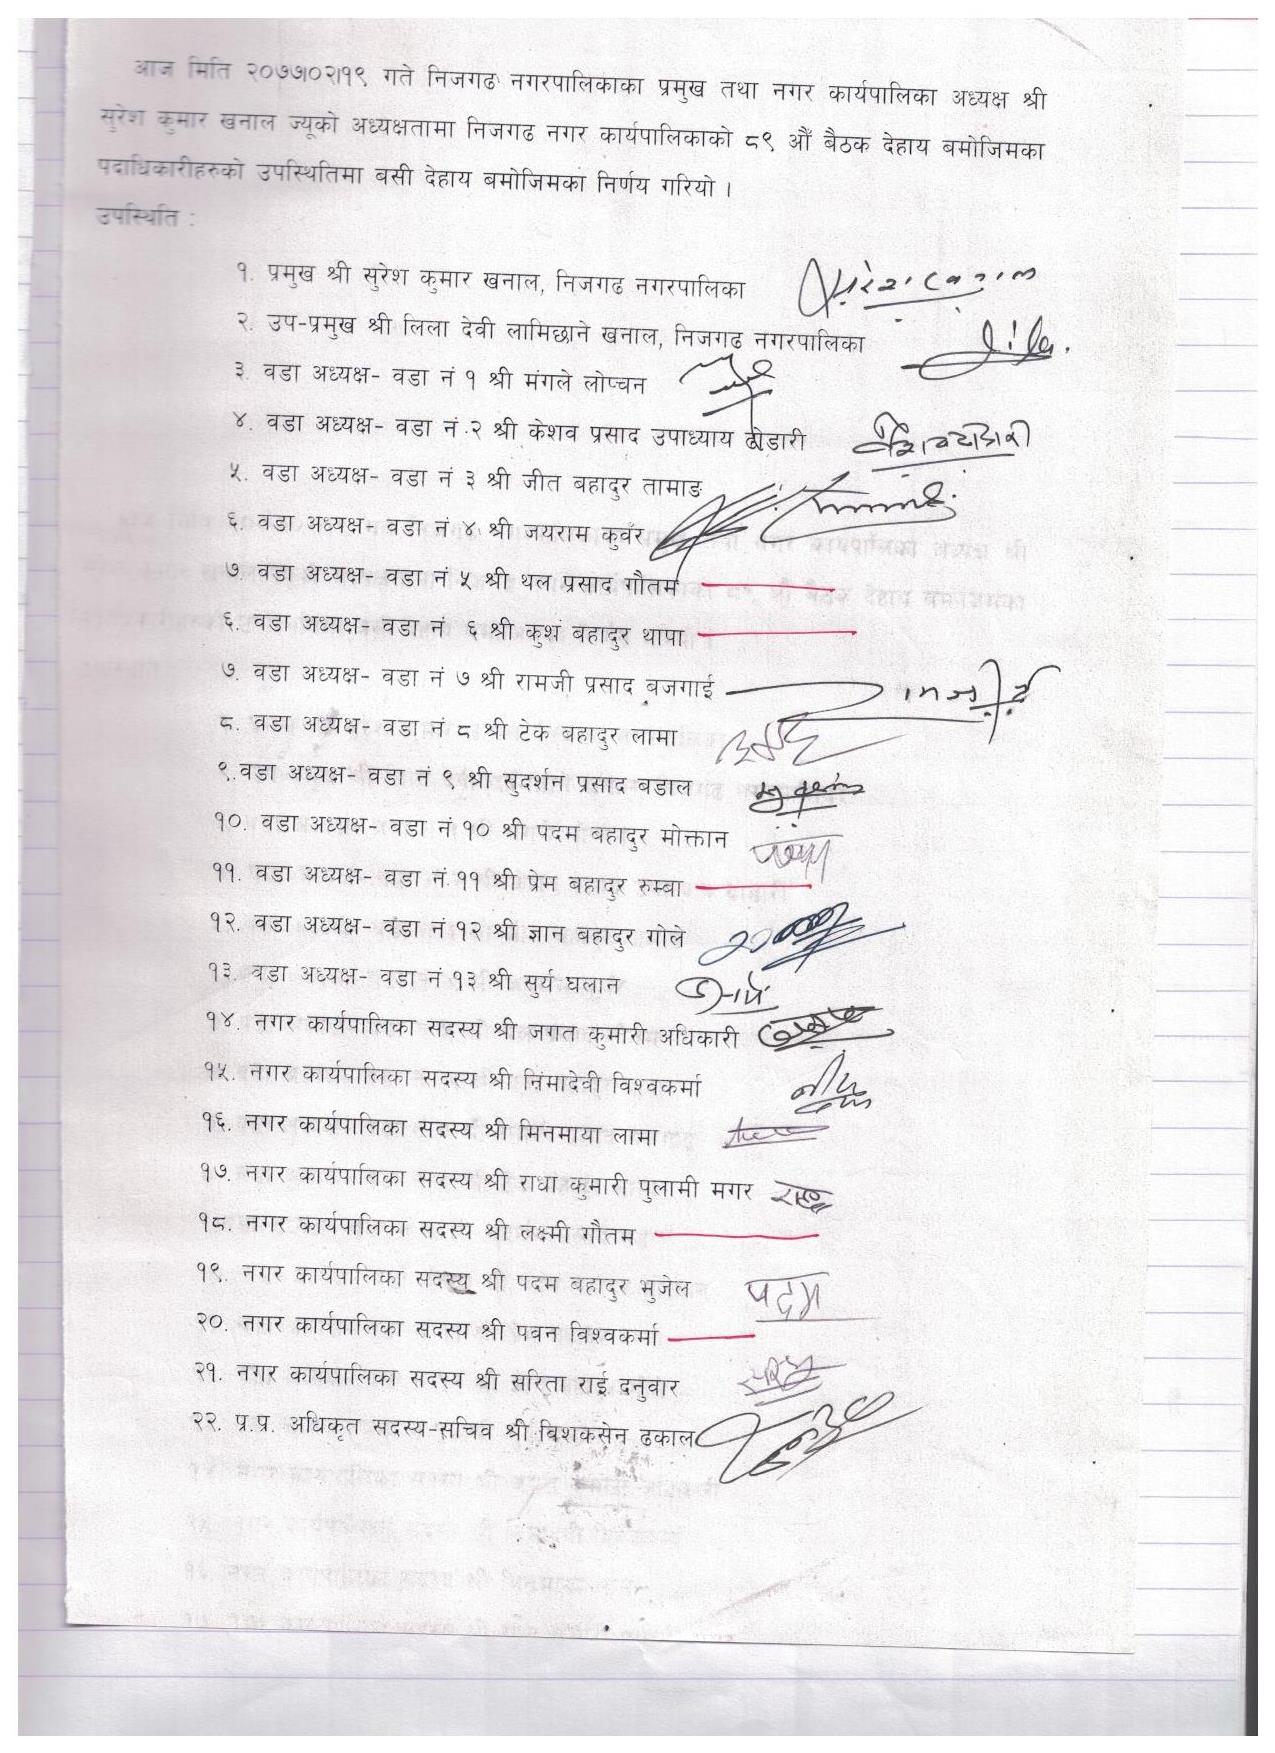 आज मिति २०७७।०२।१९ गते निजगढ नगरपालिकाका प्रमुख तथा नगर कार्यपालिका अध्यक्ष श्री
सुरेश कुमार खनाल ज्यूको अध्यक्षतामा निजगढ नगर कार्यपालिकाको ८९ औं बैठक देहाय बमोजिमका
पदाधिकारीहरुको उपस्थितिमा बसी देहाय बमोजिमका निर्णय गरियो ।
उपस्थिति :
१. प्रमुख श्री सुरेश कुमार खनाल, निजगढ नगरपालिका
२. उप-प्रमुख श्री लिला देवी लामिछाने खनाल, निजगढ नगरपालिका
३. वडा अध्यक्ष- वडा नं १ श्री मंगले लोप्चन
४. वडा अध्यक्ष- वडा नं २ श्री केशव प्रसाद उपाध्याय ढोडारी
५. वडा अध्यक्ष- वडा नं ३ श्री जीत बहादुर तामाङ
६. वडा अध्यक्ष- वडा नं ४ श्री जयराम कुवँर
७. वडा अध्यक्ष- वडा नं ५ श्री थल प्रसाद गौतम
६. वडा अध्यक्ष- वडा नं ६ श्री कुश बहादुर थापा
७. वडा अध्यक्ष- वडा नं ७ श्री रामजी प्रसाद बजगाई
८. वडा अध्यक्ष- वडा नं ८ श्री टेक बहादुर लामा
९.वडा अध्यक्ष- वडा नं ९ श्री सुदर्शन प्रसाद बडाल
१०. वडा अध्यक्ष- वडा नं १० श्री पदम बहादुर मोक्तान
११. वडा अध्यक्ष- वडा नं ११ श्री प्रेम बहादुर रुम्बा
१२. वडा अध्यक्ष- वडा नं १२ श्री ज्ञान बहादुर गोले
१३. वडा अध्यक्ष- वडा नं १३ श्री सुर्य घलान
१४. नगर कार्यपालिका सदस्य श्री जगत कुमारी अधिकारी
१५. नगर कार्यपालिका सदस्य श्री निमादेवी विश्वकर्मा
१६. नगर कार्यपालिका सदस्य श्री मिनमाया लामा
१७. नगर कार्यपालिका सदस्य श्री राधा कुमारी पुलामी मगर
१८. नगर कार्यपालिका सदस्य श्री लक्ष्मी गौतम
१९. नगर कार्यपालिका सदस्य श्री पदम बहादुर भुजेल पदम
२०. नगर कार्यपालिका सदस्य श्री पवन विश्वकर्मा
२१. नगर कार्यपालिका सदस्य श्री सरिता राई दनुवार
२२. प्र.प्र. अधिकृत सदस्य-सचिव श्री विशकसेन ढकाल